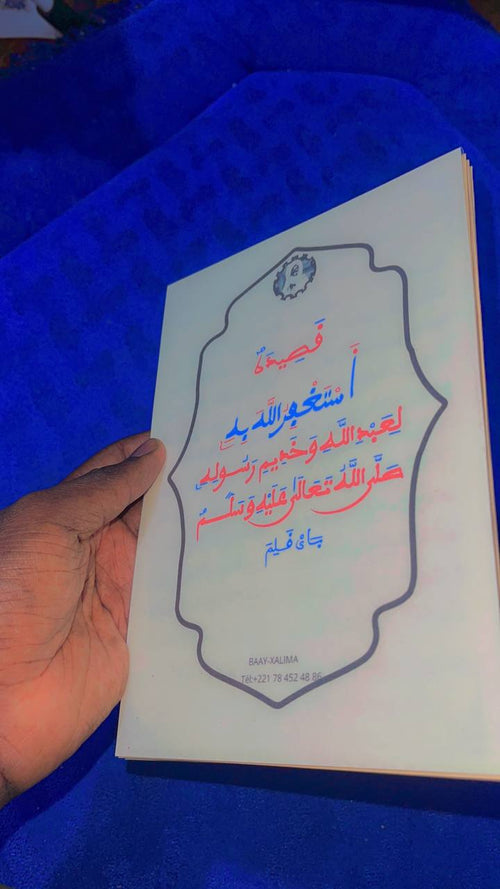 قَصِيدَةُ
أَسْتَغْفِرُ اللَّهَ بِهِ
لِعَبْدِ اللَّهِ وَخَدِيمِ رَسُولِهِ
صَلَّى اللَّهُ تَعَالَى عَلَيْهِ وَسَلَّمْ
بَاىْ خَلِيمَ
BAAY-XALIMA
Tél:+221 78 452 48 86